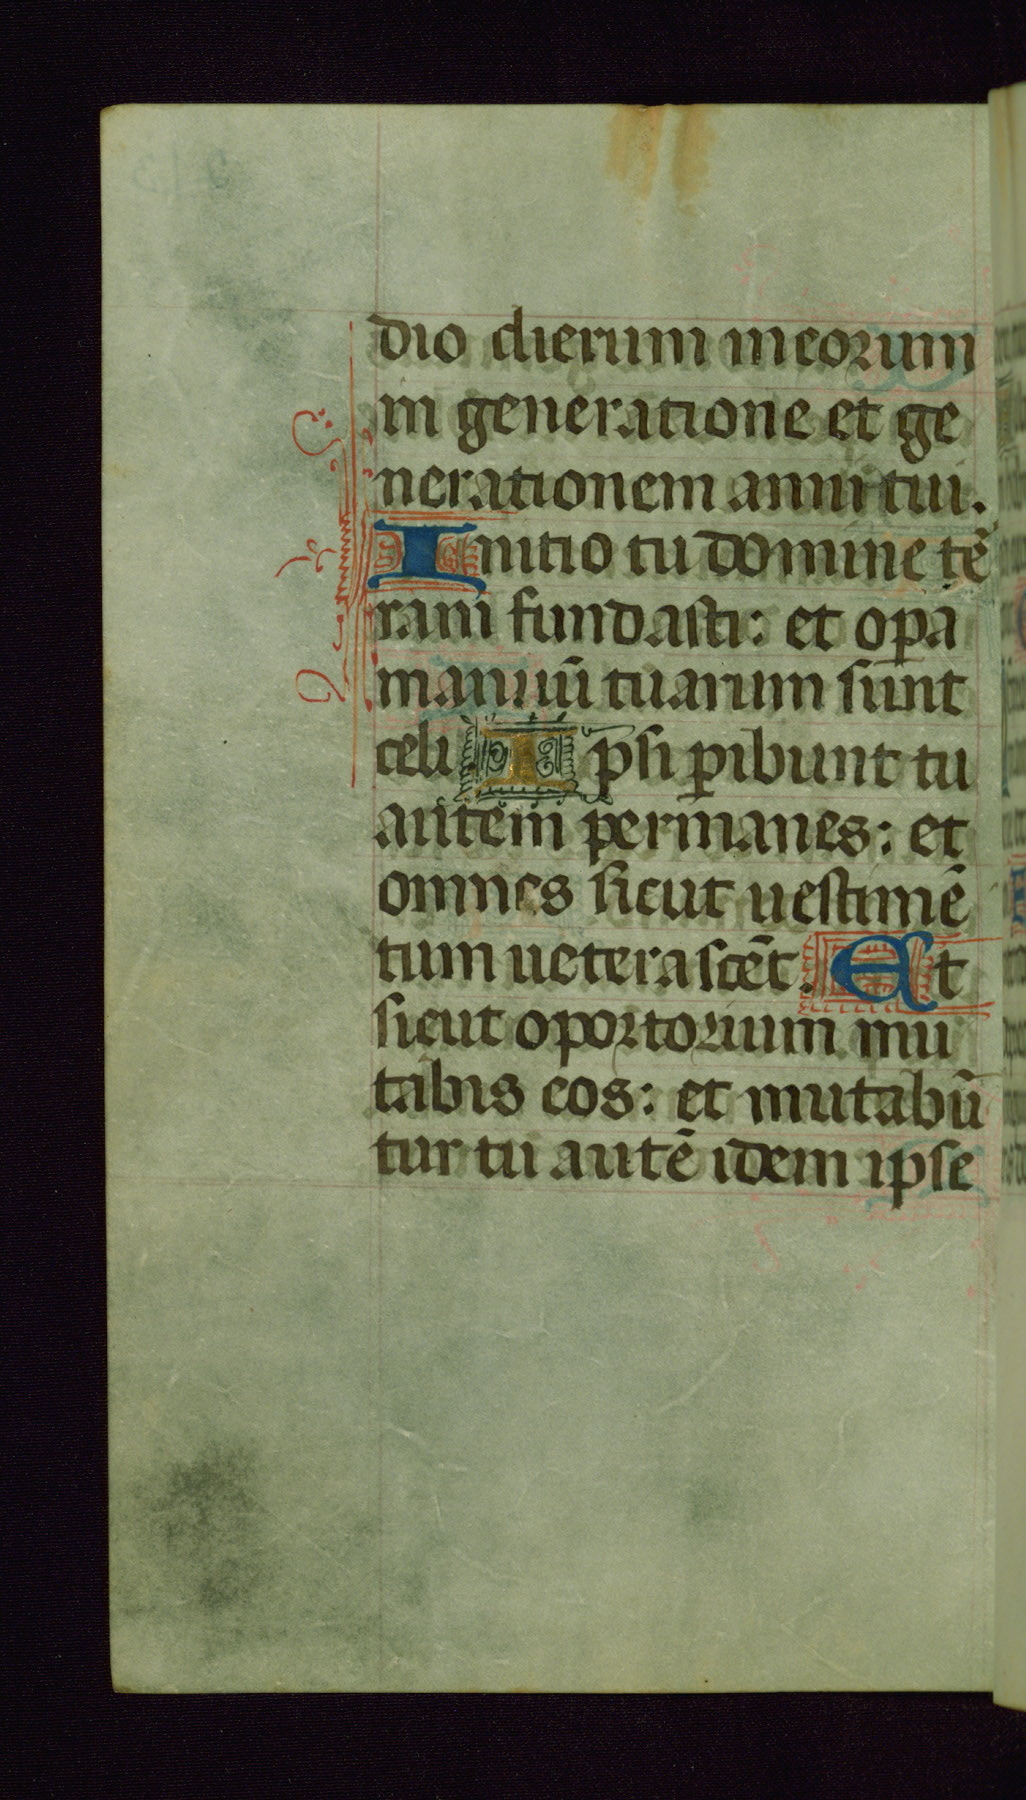 dio dierum meorum
in generatione et ge
nerationem anni tui.
Initio tu domine tē
ram fundasti: et opa
manuū tuarum sunt
celi Ipsi pibunt tu
autem permanes: et
omnes sicut uestimē
tum ueterascēt. Et
sicut oportorium mu
tabis eos: et mutabū
tur tu autē idem ipse